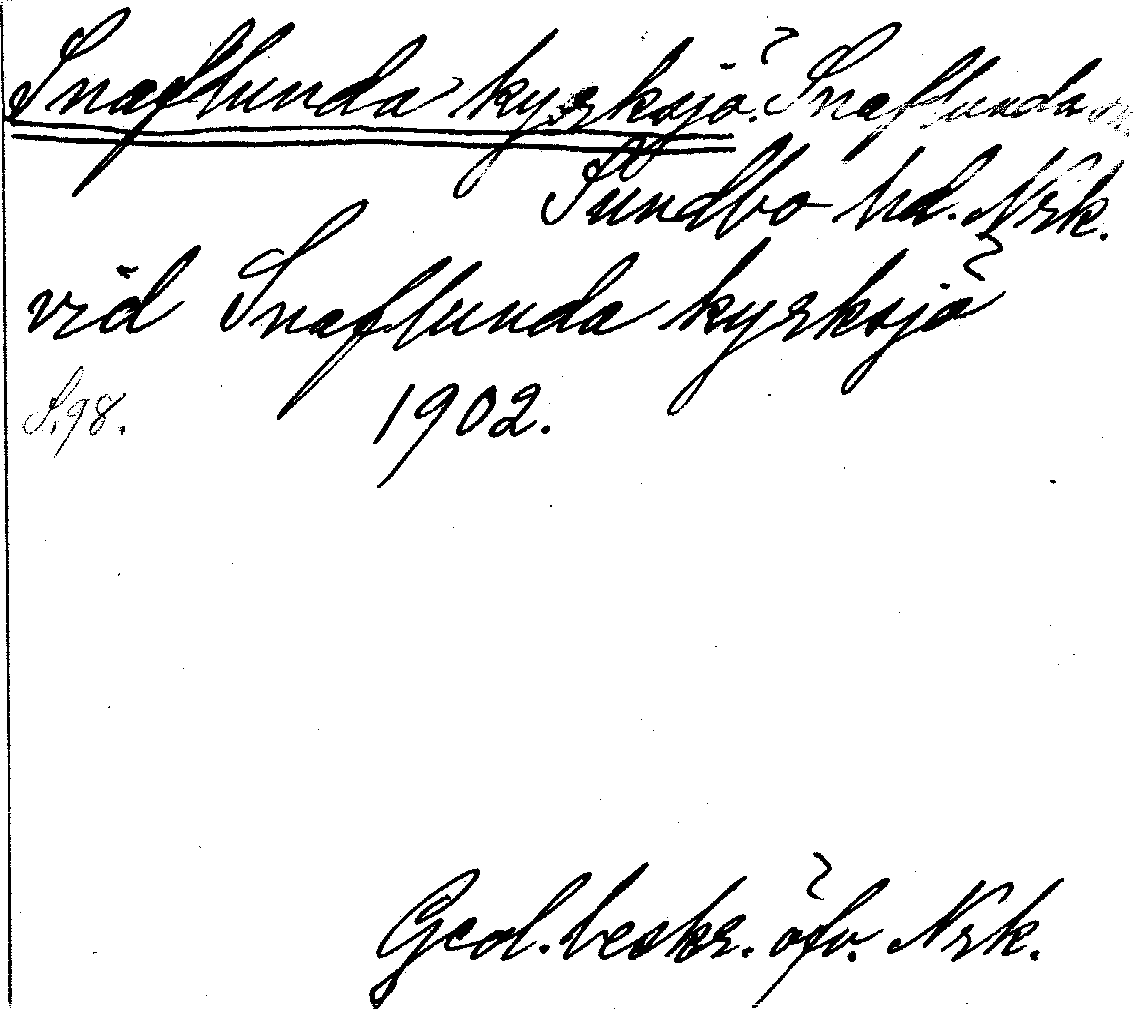 Snaflunda kyrksjö. Snaflunda sn.
Sundbo hd. Nrk.
vid Snaflunda kyrksjö
S. 98. 1902.
Geol. beskr. öfv. Nrk.